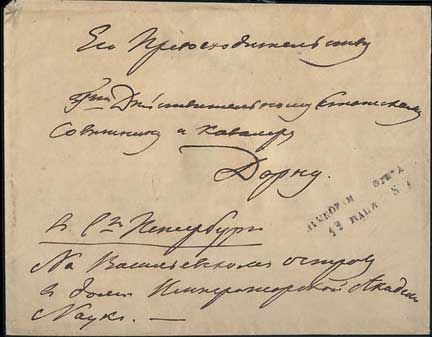 Его Превосходительству
Гну Действительному Статскому
Советнику и Кавалеру
Дорну.
в С. Петербург
На Васильевском острову
в доме Императорской Академии
Наук. —
12 МАЯ